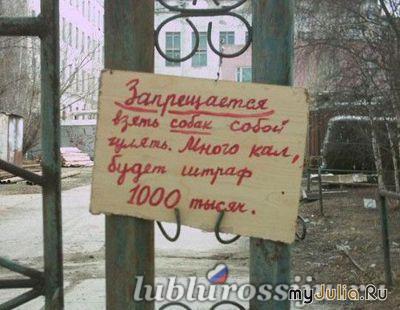 Запрещается
взять собак собой
гулять. Много кал,
будет штраф
1000 тысяч.
lublurossiju.ru
myJulia.Ru